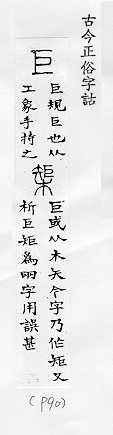 古今正俗字詁
巨
巨規巨也从
工象手持之
榘
巨或从木矢今字乃作矩又
析巨矩為兩字用誤甚
(P90)